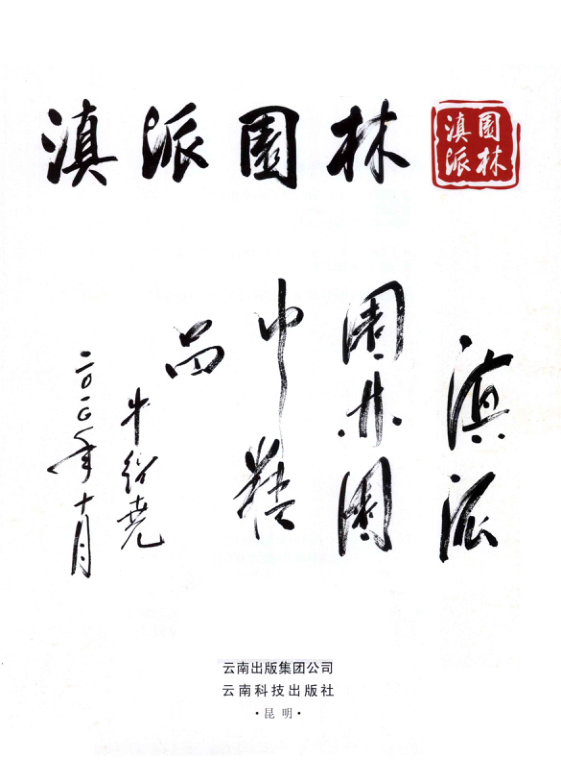 滇派园林
园林
滇派
滇派
园林园
中精
品
牛绍尧
二〇一二年十月
云南出版集团公司
云南科技出版社
·昆明·